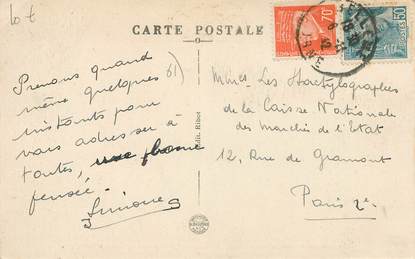 lot
CARTE POSTALE
61
Prenons quand
même quelques
instants pour
vous adresser à
toutes, une bonne
pensée.
Simone
Mmes Les Dactylographes
de la Caisse Nationale
des Marchés de l'Etat
12, Rue de Gramont
Paris 2e
70f
50